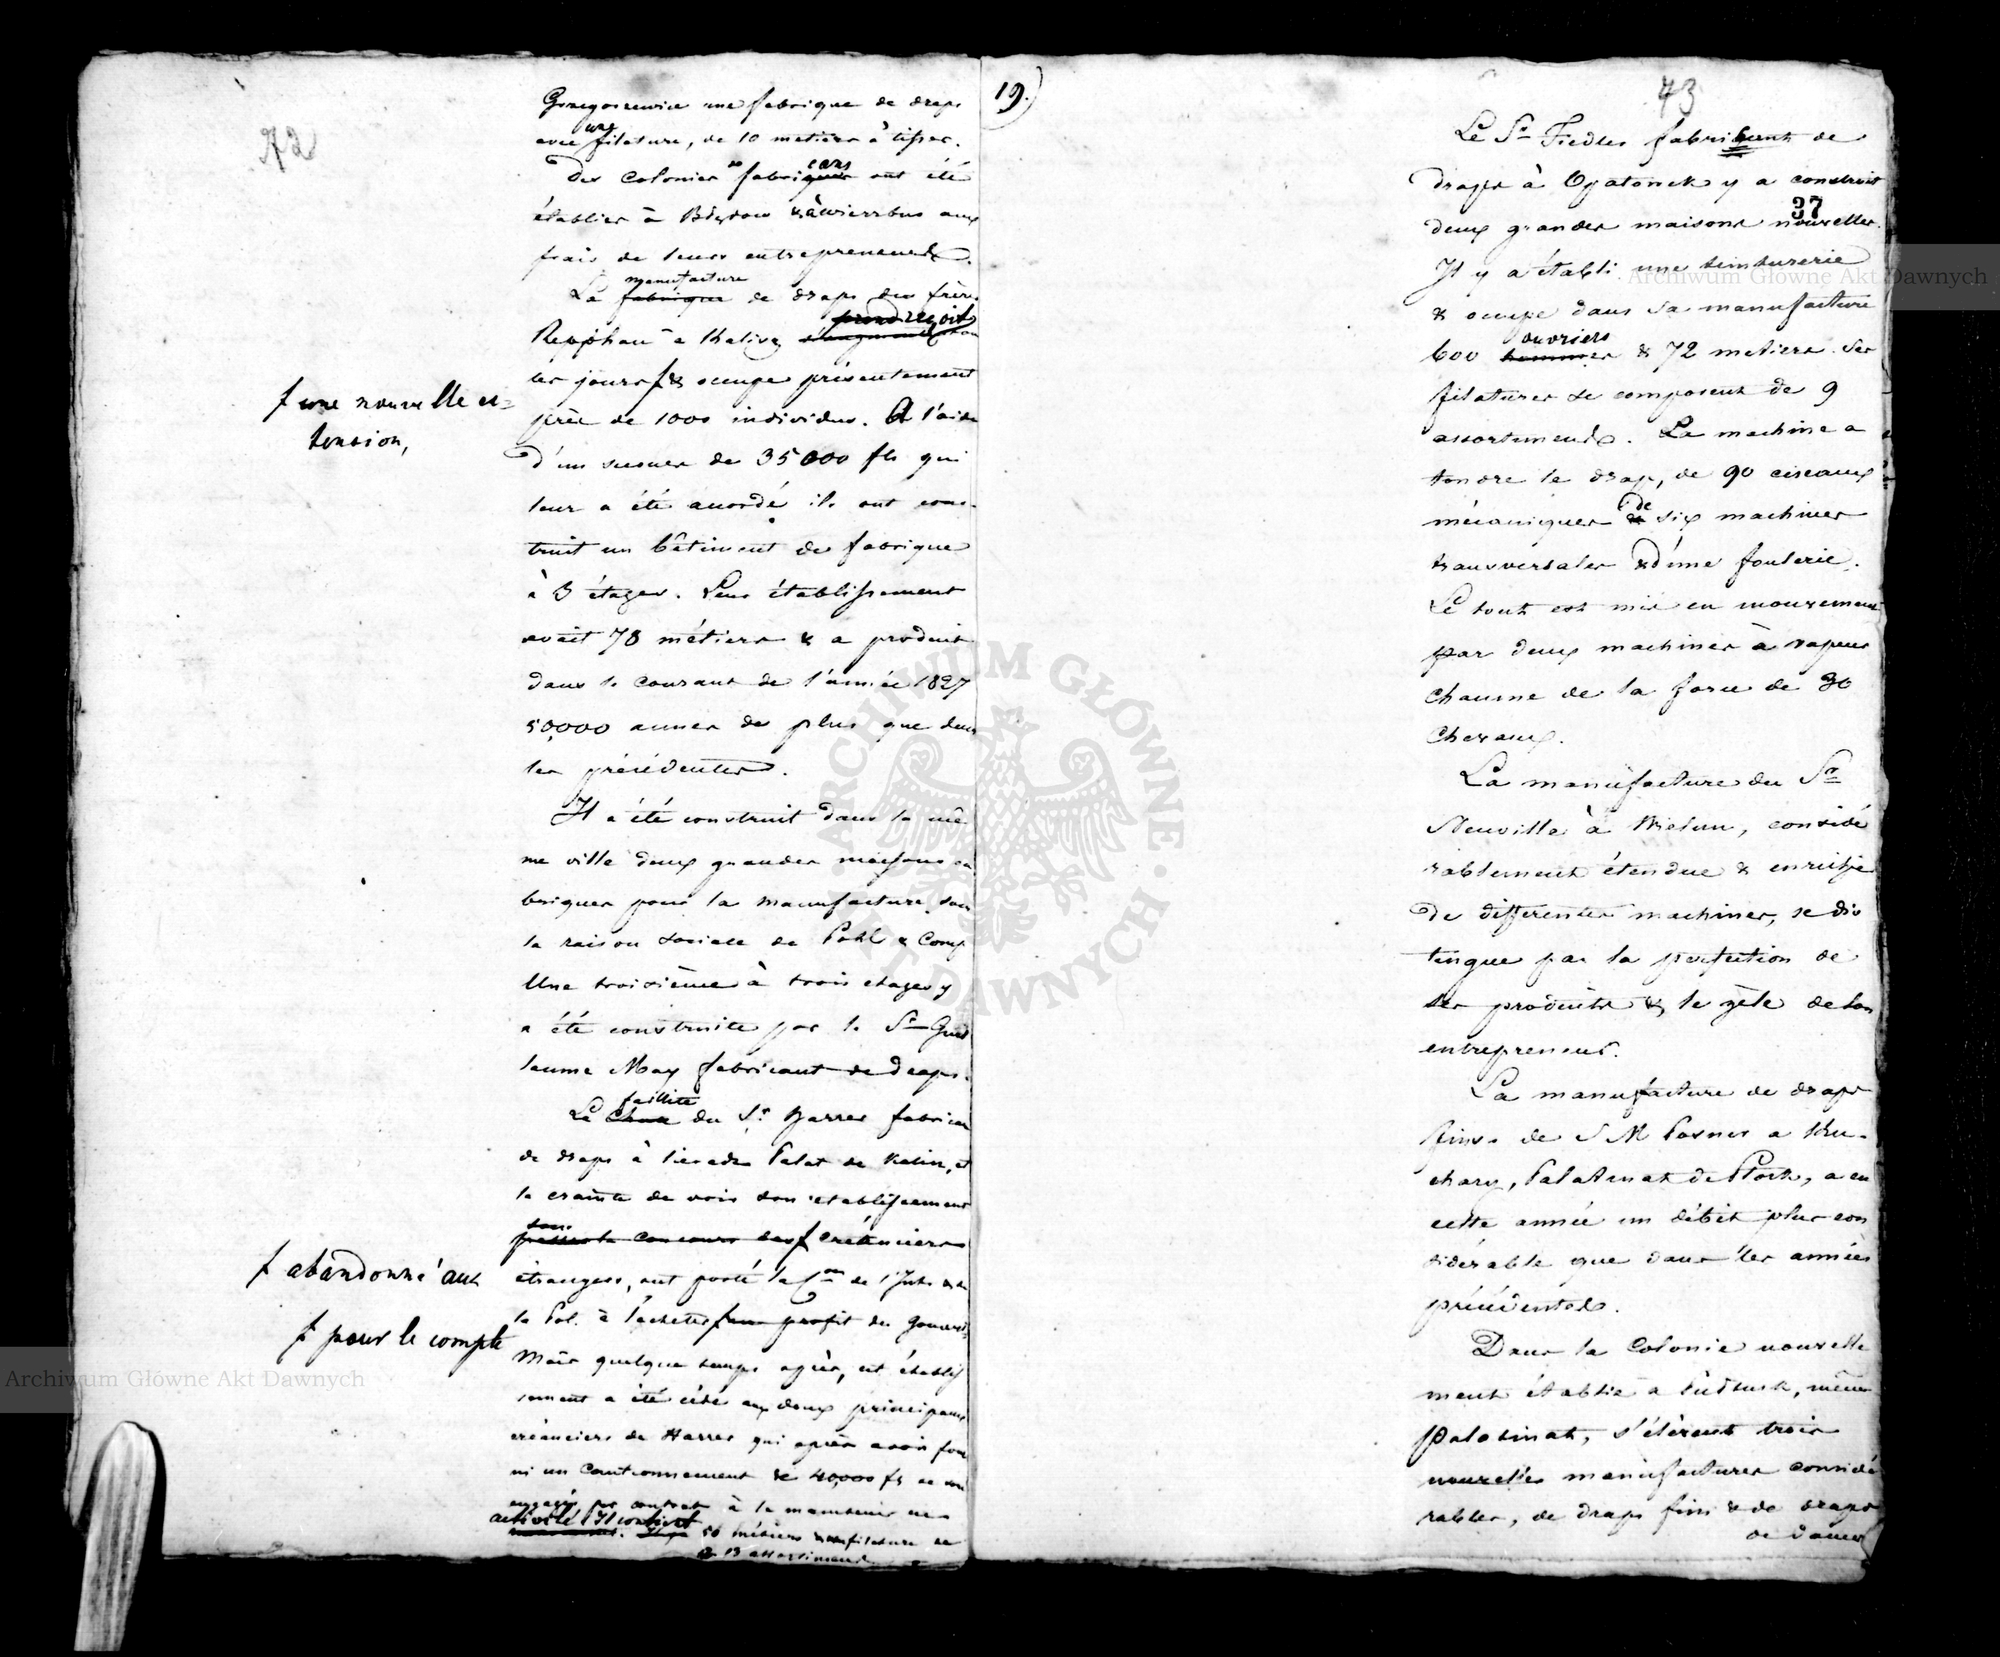 72
Grzegorzewice une fabrique de draps
avec une filature, de 10 metiers à tisser.
Des Colonies de fabricans ont été
établies à Bdzow & à Wierzbno aux
frais de leurs entrepreneurs.
La manufacture fabrique de draps des frères
Repphan à Kalisz prend reçoit
les jours & occupe présentement
f une nouvelle ex=
tension,
près de 1000 individus. A l'aide
d'un secours de 35000 fls qui
leur a été accordé ils ont cons-
truit un bâtiment de fabrique
à 3 étages. Leur établissement
avait 78 métiers & a produit
dans le courant de l'année 1827
50,000 aunes de plus que dans
les précédentes.
Il a été construit dans la mê
me ville deux grandes maisons en
briques pour la manufacture sous
la raison sociale de Pohl & Comp
Une troisième à trois etages y
a été construite par le Sr Guil
laume May fabricant de draps.
La faillite du Sr Harrer fabricant
de draps à Sieradz Palat de Kalisz, et
la crainte de voir son établissement
f abandonné aux
créanciers
étrangers, ont porté la Con de l'Intr & de
la Pol. à l'acheter profit du Gouvert
f pour le compte
Mais quelque temps après, cet établis
sement a été cédé aux deux principaux
créanciers de Harrer qui après avoir four
ni un cautionnement de 40,000 fs se sont
engagés par contrat à le maintenir en
activité. Il contient 50 métiers & une filature de
13 assortimens
19.)
73
37
Le Sr Fiedler fabricant de
draps à Opatonek y a construit
deux grandes maisons nouvelles.
Il y a établi une teinturerie
& occupe dans sa manufacture
600 ouvriers hommes & 72 metiers. Ses
filatures se composent de 9
assortiments. La machine a
tondre le drap, de 90 ciseaux
mécaniques de six machines
transversales & d'une foulerie.
Le tout est mis en mouvement
par deux machines à vapeur
chacune de la force de 30
Chevaux.
La manufacture du Sr
Neuville à Wielun, considé
rablement étendue & enrichie
de différentes machines, se dis
tingue par la perfection de
ses produits & le zèle de son
entrepreneur.
La manufacture de draps
fins de S M Posner a Khu-
chary, Palatinat de Plock, a eu
cette année un débit plus con
sidérable que dans les années
précédentes.
Dans la Colonie nouvelle
ment établie à Pultusk, même
Palatinat, s'élèvent trois
nouvelles manufactures considé
rables, de draps fins & de draps
de dames
Archiwum Główne Akt Dawnych
Archiwum Główne Akt Dawnych
ARCHIWUM GŁÓWNE AKT DAWNYCH